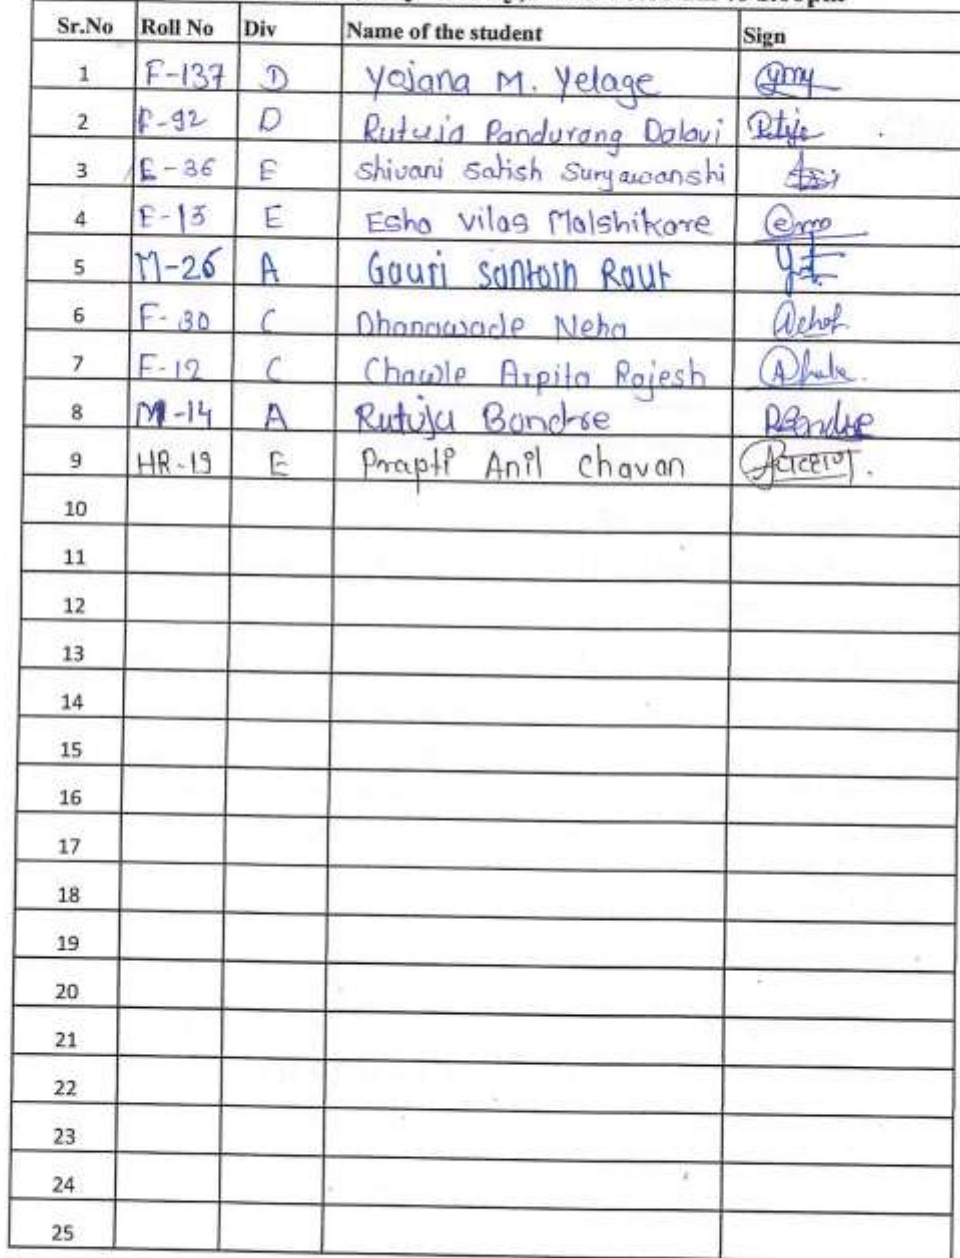 Sr.No Roll No Div Name of the student Sign
1 F-137 D Yojana M. Yelage
2 F-92 D Rutuja Pandurang Dalavi
3 E-36 E Shivani Satish Suryawanshi
4 F-15 E Esha Vilas Malshikare
5 M-26 A Gauri Santosh Raut
6 F-30 C Dhanawade Neha
7 F-12 C Chawle Arpita Rajesh
8 M-14 A Rutuja Bondre RBondre
9 HR-19 E Prapti Anil Chavan
10
11
12
13
14
15
16
17
18
19
20
21
22
23
24
25